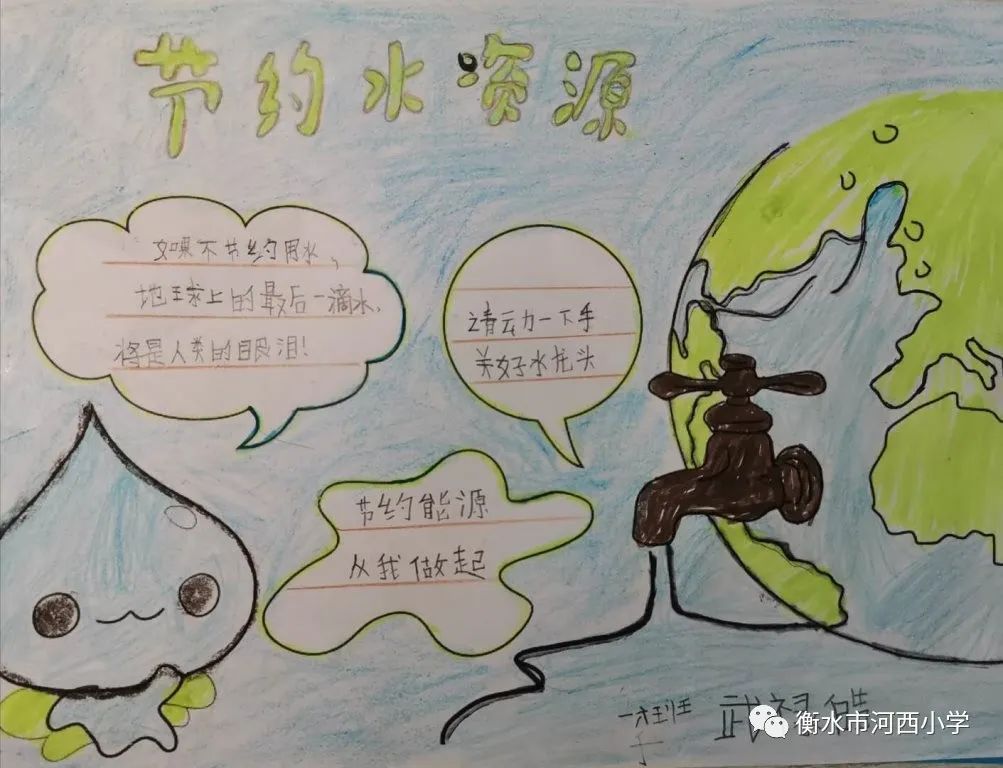 节约水资源
如果不节约用水,
地球上的最后一滴水,
将是人类的眼泪!
请动一下手
关好水龙头
节约能源
从我做起
衡水市河西小学